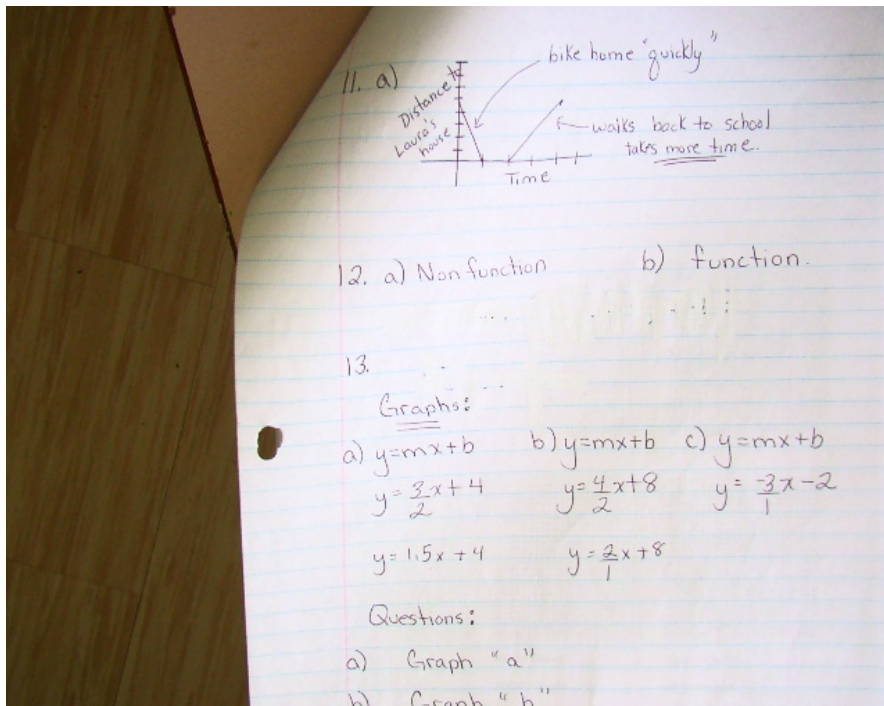 11. a)
Distance to
Laura's
house
bike home "quickly"
walks back to school
takes more time.
Time
12. a) Non function b) function.
13.
Graphs:
a) y=mx+b b) y=mx+b c) y=mx+b
y=3/2x+4 y=4/2x+8 y=-3/1x-2
y=1.5x+4 y=2/1x+8
Questions:
a) Graph "a"
b) Graph "b"